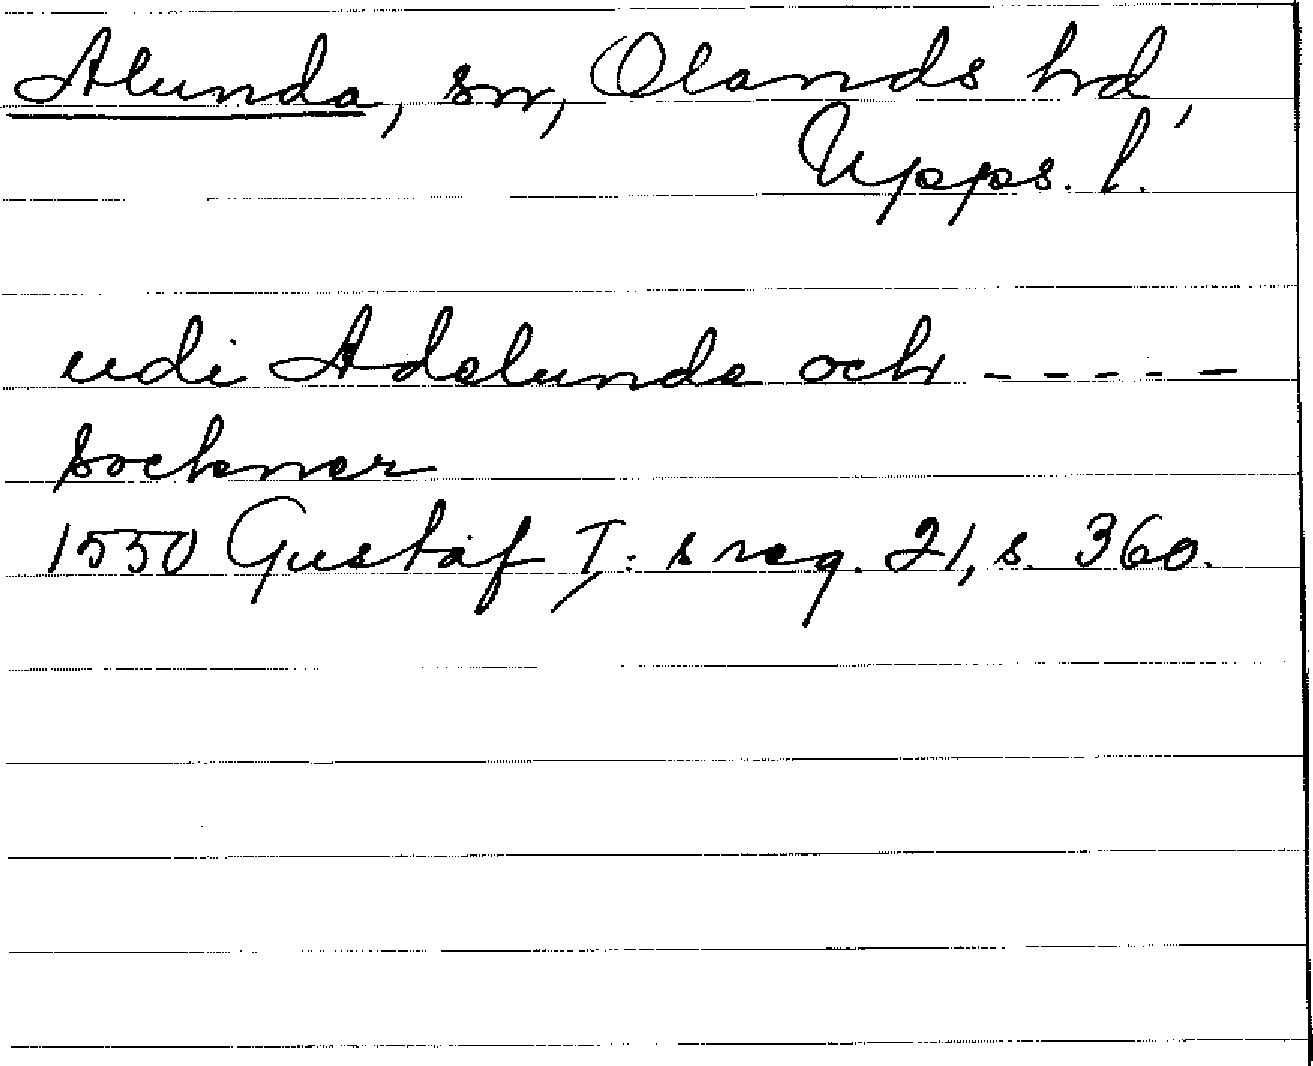 Alunda, sn, Olands hd,
Upps. l.
udi Adelunda och - - - - -
sockner
1550 Gustaf I: s reg. 21, s. 360.